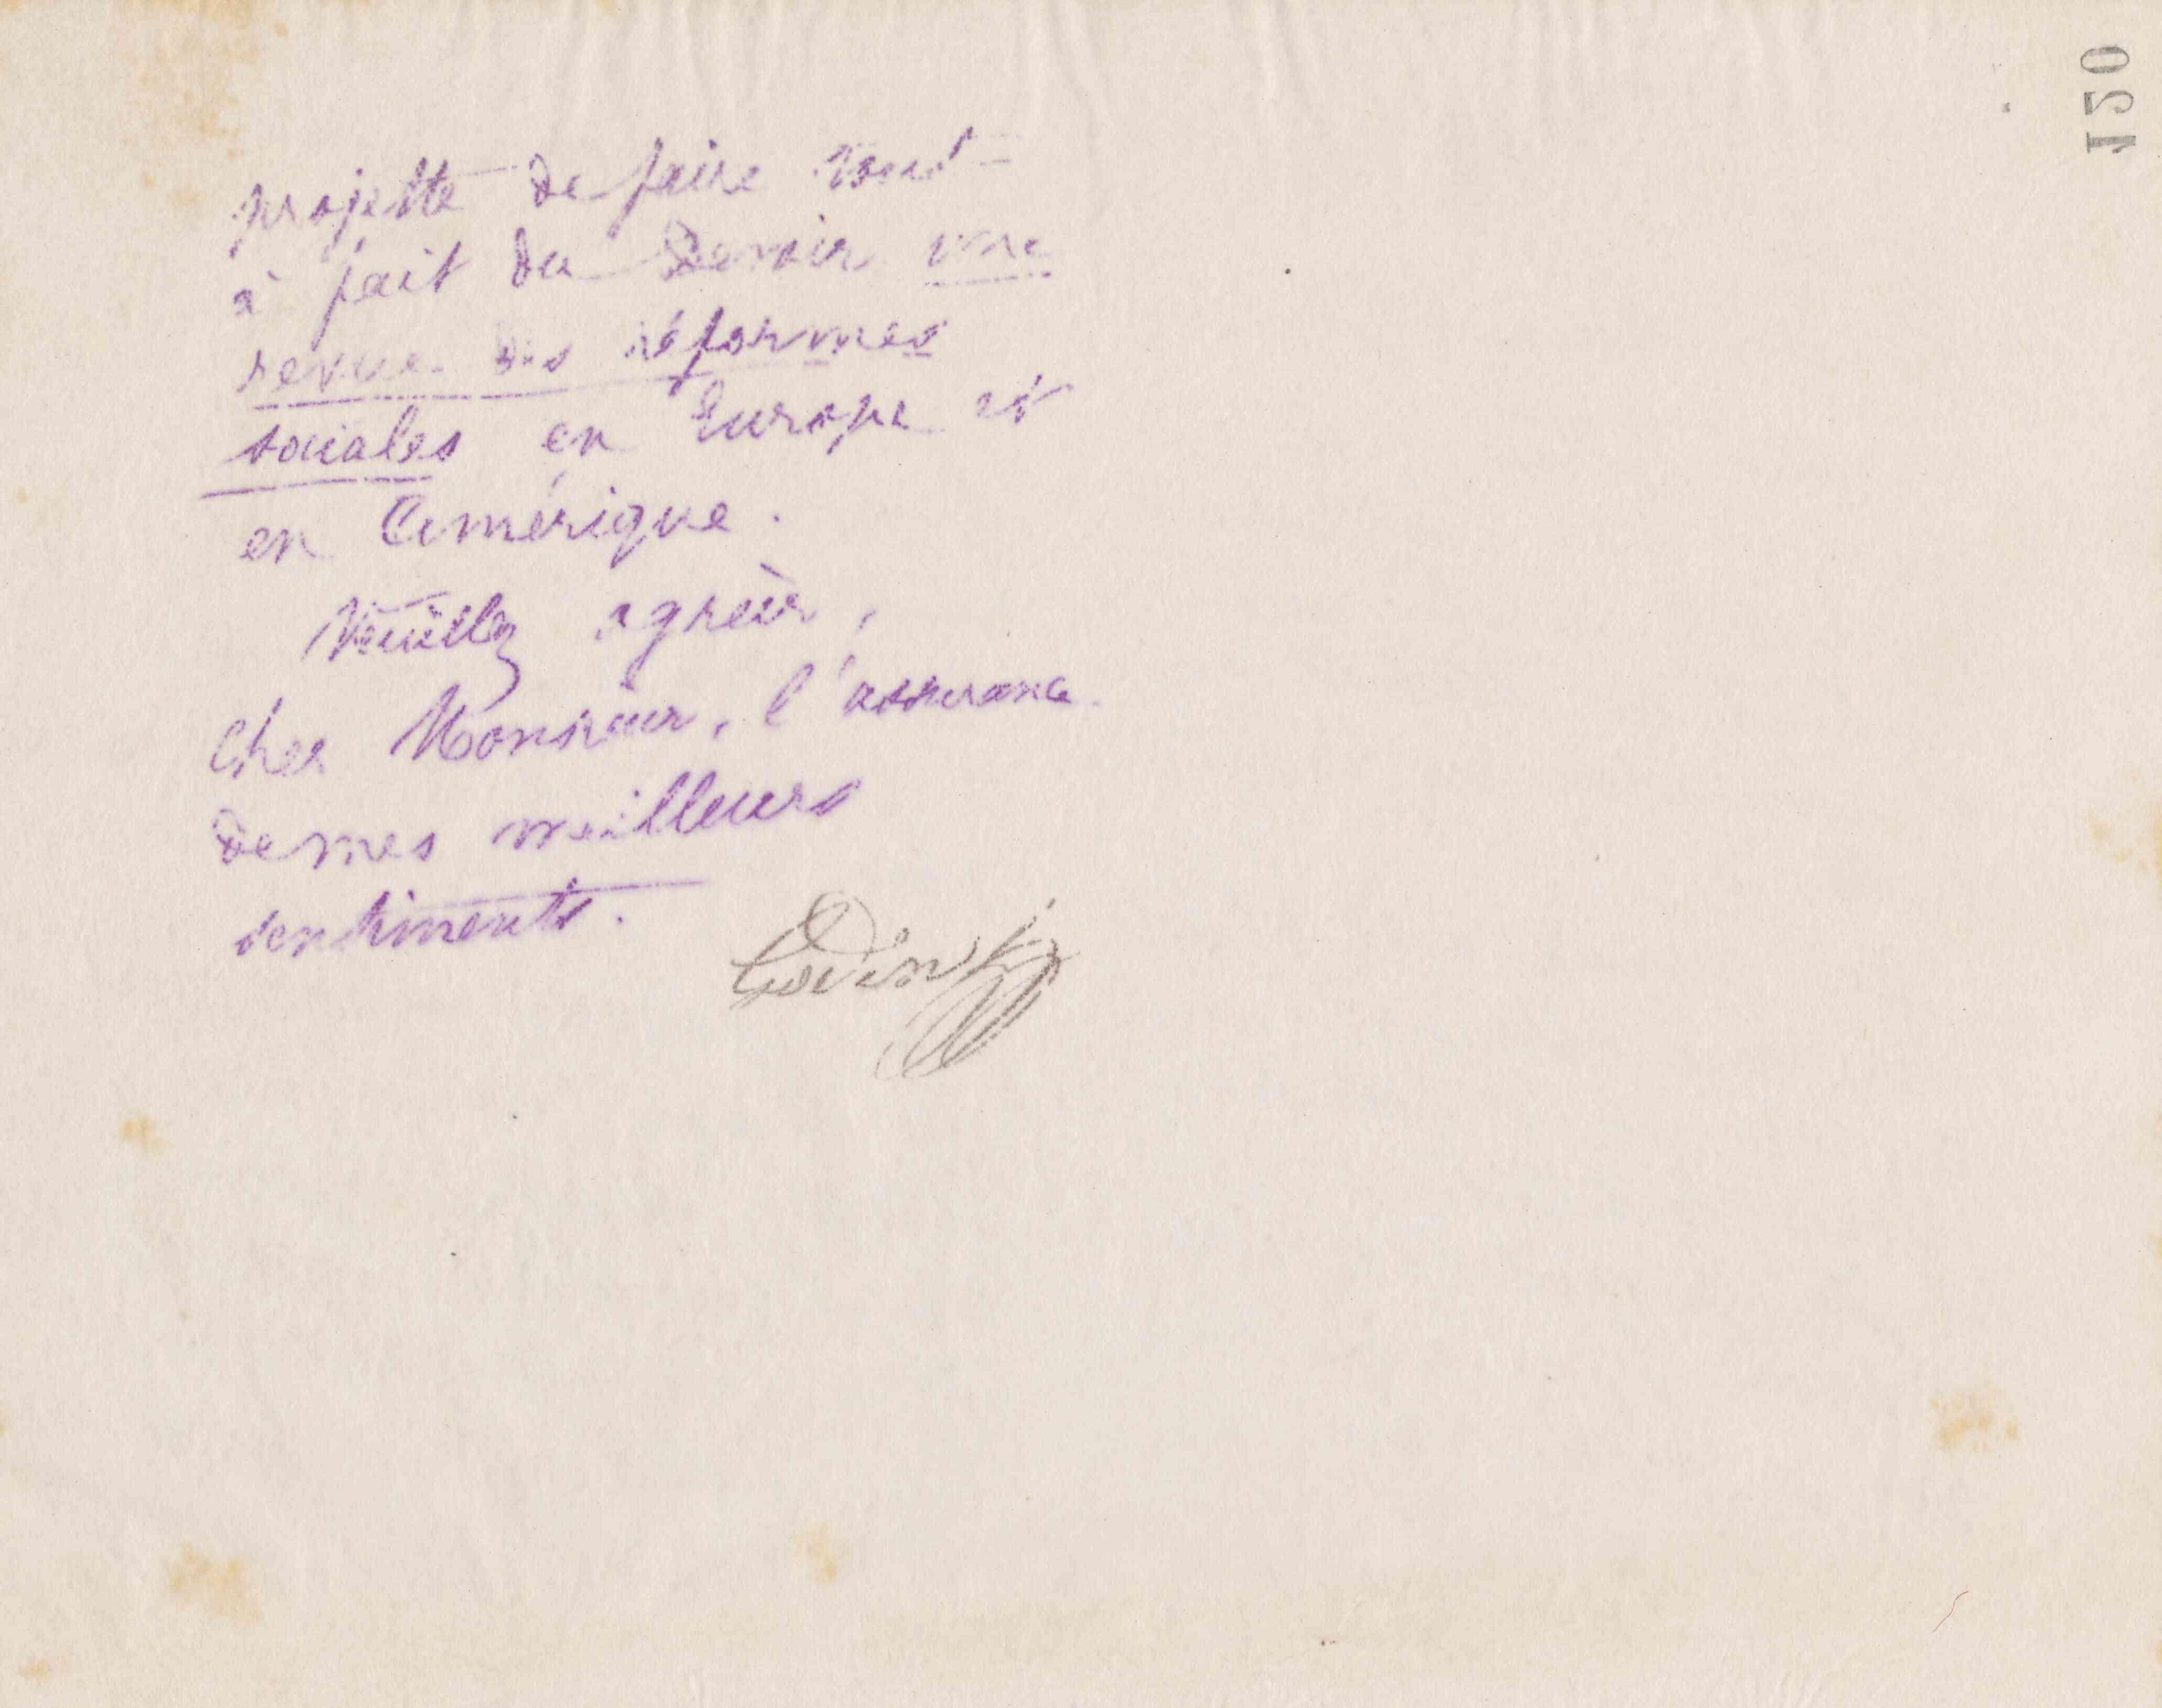 projette de faire tout
à fait du Devoir une
revue des réformes
sociales en Europe et
en Amérique.
Veuillez agréer,
cher Monsieur, l'assurance
de mes meilleurs
sentiments.
Godin
120